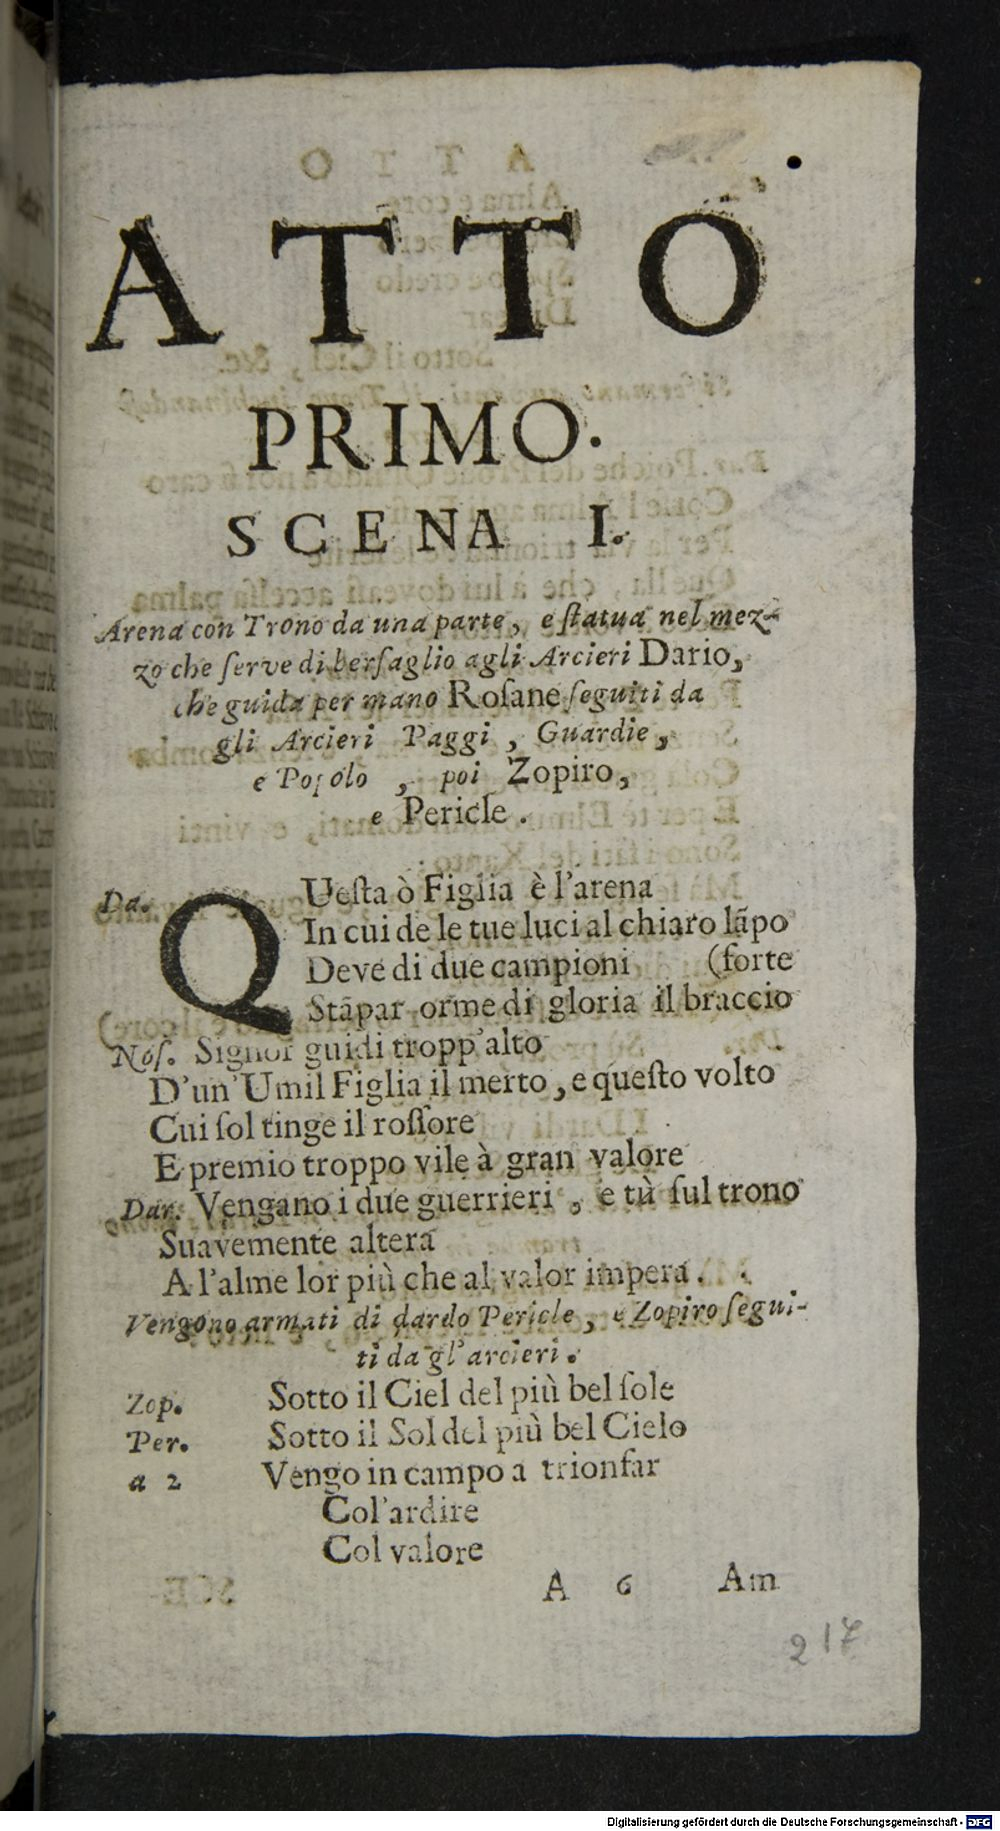 ATTO
PRIMO.
SCENA I.
Arena con Trono da una parte, e ſtatua nel mez-
zo che ſerve di berſaglio agli Arcieri Dario,
che guida per mano Roſane ſeguiti da
gli Arcieri Paggi, Guardie,
e Popolo, poi Zopiro,
e Pericle.
Da. QUeſta ò Figlia è l'arena
In cui de le tue luci al chiaro lãpo
Deve di due campioni (forte
Stãpar orme di gloria il braccio
Roſ. Signor guidi tropp'alto
D'un'Umil Figlia il merto, e queſto volto
Cui ſol tinge il roſſore
E premio troppo vile à gran valore
Dar. Vengano i due guerrieri, e tù ſul trono
Suavemente altera
A l'alme lor più che al valor impera.
Vengono armati di dardo Pericle, e Zopiro ſegui-
ti da gl'arcieri.
Zop. Sotto il Ciel del più bel ſole
Per. Sotto il Sol del più bel Cielo
a 2 Vengo in campo a trionfar
Col'ardire
Col valore
A 6 Am
217
Digitalisierung gefördert durch die Deutsche Forschungsgemeinschaft - DFG